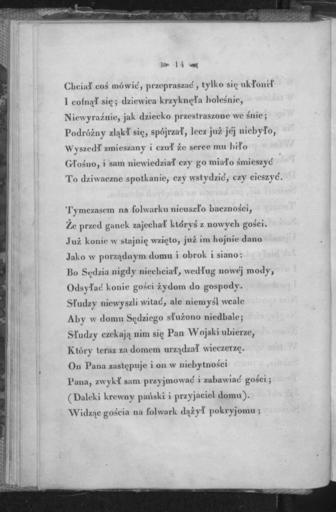 14
Chciał coś mówić, przepraszać, tylko się ukłonił
I cofnął się; dziewica krzyknęła boleśnie,
Niewyraźnie, jak dziecko przestraszone we śnie;
Podróżny zląkł się, spójrzał, lecz już jéj niebyło,
Wyszedł zmieszany i czuł że serce mu biło
Głośno, i sam niewiedział czy go miało śmieszyć
To dziwaczne spotkanie, czy wstydzić, czy cieszyć.
Tymczasem na folwarku nieuszło baczności,
Że przed ganek zajechał któryś z nowych gości.
Już konie w stajnię wzięto, już im hojnie dano
Jako w porządnym domu i obrok i siano:
Bo Sędzia nigdy niechciał, według nowéj mody,
Odsyłać konie gości żydom do gospody.
Słudzy niewyszli witać, ale niemyśl wcale
Aby w domu Sędziego służono niedbale;
Słudzy czekają nim się Pan Wojski ubierze,
Który teraz za domem urządzał wieczerzę.
On Pana zastępuje i on w niebytności
Pana, zwykł sam przyjmować i zabawiać gości;
(Daleki krewny pański i przyjaciel domu).
Widząc gościa na folwark dążył pokryjomu;